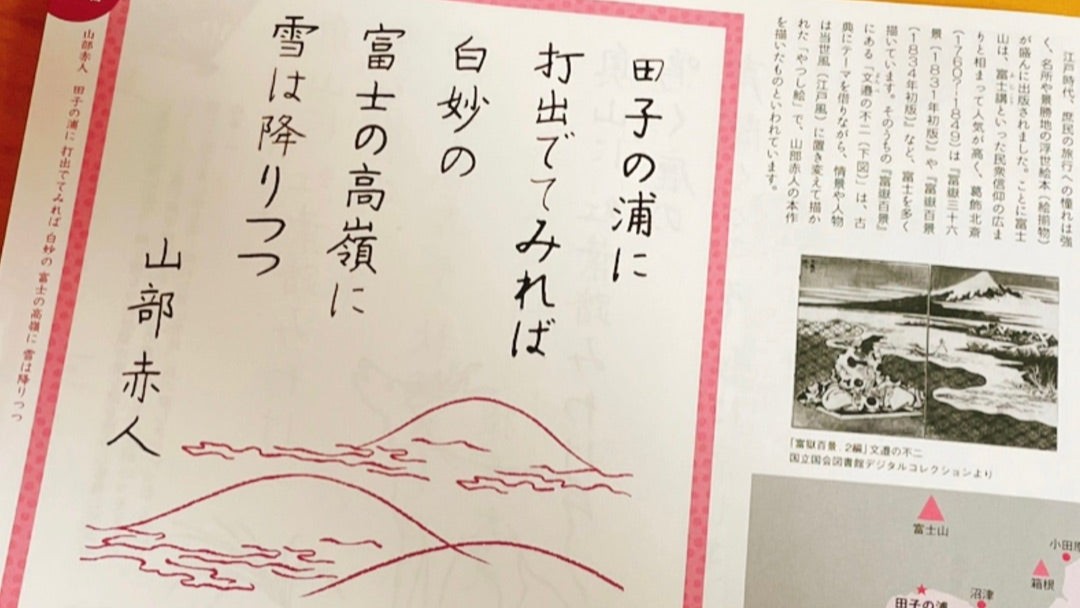 江戸時代、庶民の旅行への憧れは強
く、名所や景勝地の浮世絵本（絵揃物）
が盛んに出版されました。ことに富士
山は、富士講といった民衆信仰の広ま
りと相まって人気が高く、葛飾北斎
（1760?-1849）は『富嶽三十六
景（1831年初版）』や『富嶽百景
（1834年初版）』など、富士を多く
描いています。そのうちの『富嶽百景』
にある「文邉の不二（下図）」は、古
典にテーマを借りながら、情景や人物
は当世風（江戸風）に置き変えて描か
れた「やつし絵」で、山部赤人の本作
を描いたものといわれています。
『富嶽百景. 2編』文邉の不二
国立国会図書館デジタルコレクションより
富士山
小田原
箱根
沼津
田子の浦
田子の浦に
打出でてみれば
白妙の
富士の高嶺に
雪は降りつつ
山部赤人
山部赤人 田子の浦に 打出でてみれば 白妙の 富士の高嶺に 雪は降りつつ